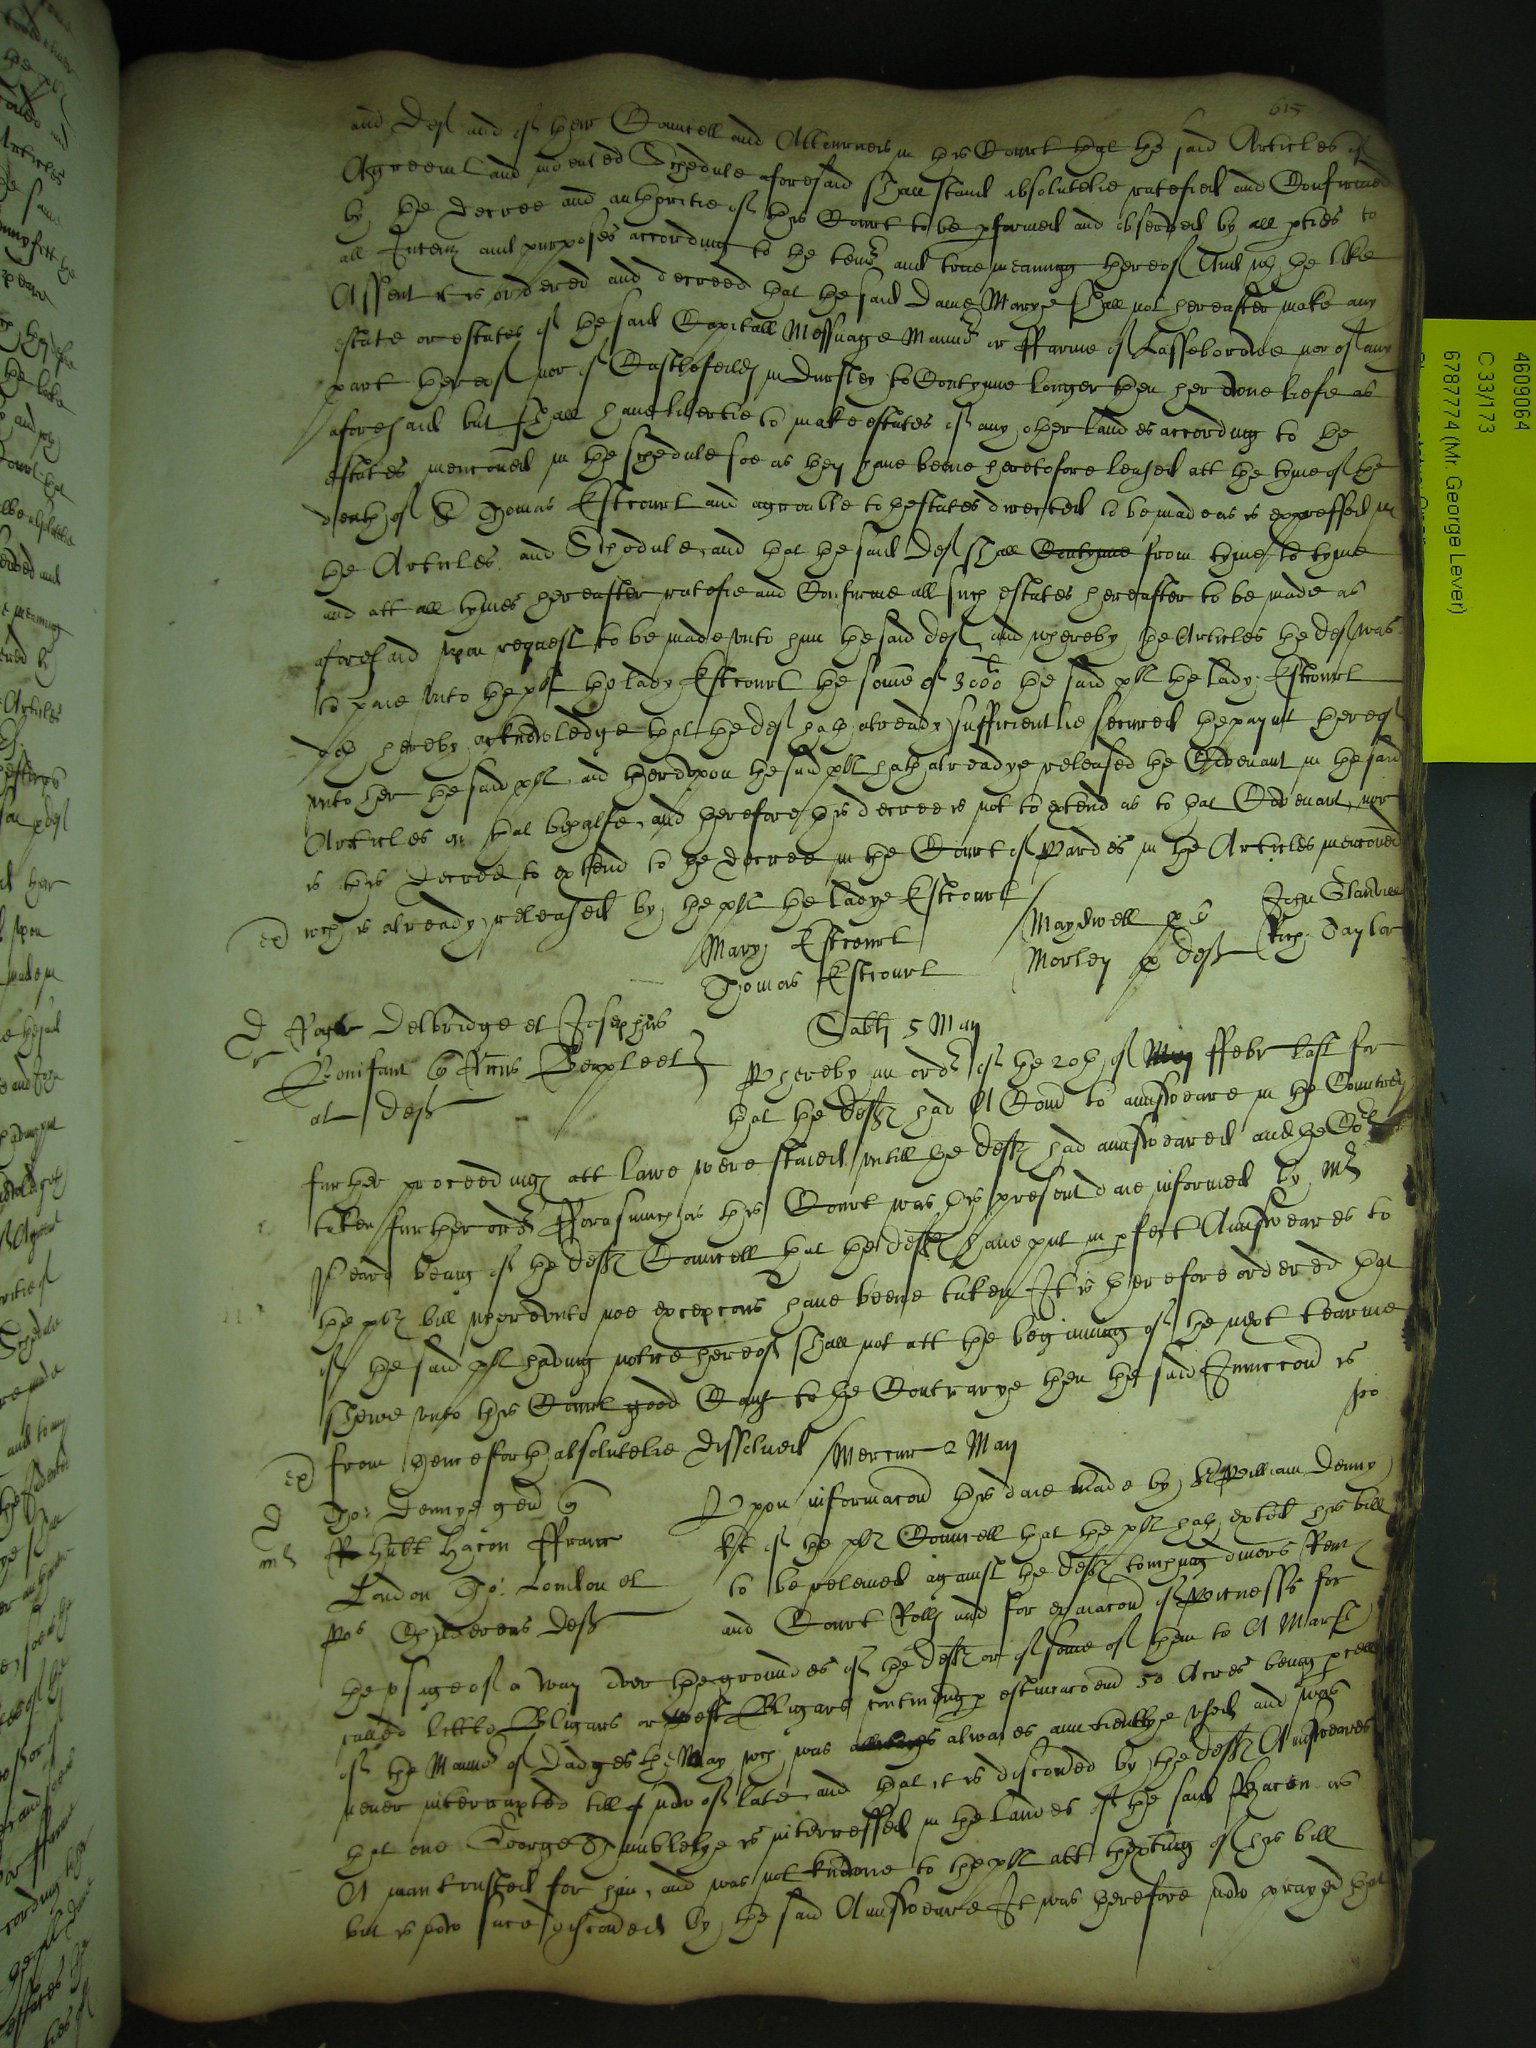 615
and Deft and of their Councell and Attourneis in this Court that the said Articles of
Agreemt and indented Schedule aforesaid shall stand absolutelie ratefied and Confirmed
by the decree and authoritie of this Court to be pformed and observed by all pties to
all Intents and purposes according to the tenor and true meaning thereof And wth the like
Assent it is ordered and decreed that the said Dame Marye shall not hereafter make any
estate or estates of the said Capitall Messuage Mannor or ffarme of Lasseborowe nor of any
part thereof nor of in Dursley to Contynue longer then her owne liefe as
aforesaid but shall have libertie to make estates of any other landes according to the
estates menconed in the schedule soe as they have beene heretofore leased att the tyme of the
death of Sr Thomas Estcourt and agreable to thestates directed to be made as is expressed in
the Articles and Schedule, and that the said Deft shall from tyme to tyme
and att all tymes hereafter ratefie and Confirme all such estates hereafter to be made as
aforesaid upon request to be made unto him the said deft, and whereby the Articles the deft was
to paie unto the plt the lady Estcourt the some of 3000l the said plt the lady Estcourt
doth hereby acknowledge that the deft hath already sufficientlie secured the paymt thereof
unto her the said plt, and thereupon the said plt hath alreadye released the Covenant in the said
Articles in that behalfe, and therefore this decree is not to extend as to that Covenant, nor
is this decree to extend to the decree in the Court of Wardes in the Articles menconed
wch is already released by the plt the Ladye Estcourt
Mary Estcourt
Thomas Estcourt
Maydwell p q
Morley p deft
John Glanvile
Rich: Taylor
Delbridge et Josephus
Bonifant
at defts
Sabti 5 May
Whereby an ordr of the 20th of ffebr last for
that the defts had A Comd to aunsweare in the Countrey
further proceedings att lawe were staied untill the defts had aunsweared and the Cort
taken further ordr Fforasmuch as this Court was this present daie informed by Mr
Weare being of the defts Councell that the defts have put in perfect Aunsweares to
the plts bill whereunto noe excepcons have beene taken It is therefore ordered that
if the said plt having notice hereof shall not att the beginning of the next tearme
shewe unto this Court good Cause to the Contrarye then the said Iniunccon is
from henceforth absolutelie dissolved
Mercur 2 May
Tho: Dennye gen
Hubt Hacon Franc
London Tho: London et
defts
Upon informacon this daie made by Sr William Denny
kt of the plts Councell that the plt hath exted his bill
to be releived against the defts touching divers Rents
and Court Rolls and for exaiacon of Witnesses for
the usage of a way over the groundes of the defts or of some of them to A Marsh
called little Bligars or West Bligars conteining p estimacoem 50 Acres being pcell
of the Mannor of the Way wch was alwaies aunciently used and was
never interrupted till now of late, and that it is discovered by the defts Aunsweares
that one George is interressed in the landes of the said Hacon as
A man trusted for him, and was not knowne to the plt att thexting of his bill
but is now since discovered by the said Aunsweare It was therefore now prayed that
4609064
C 33/173
6787774 (Mr. George Lever)